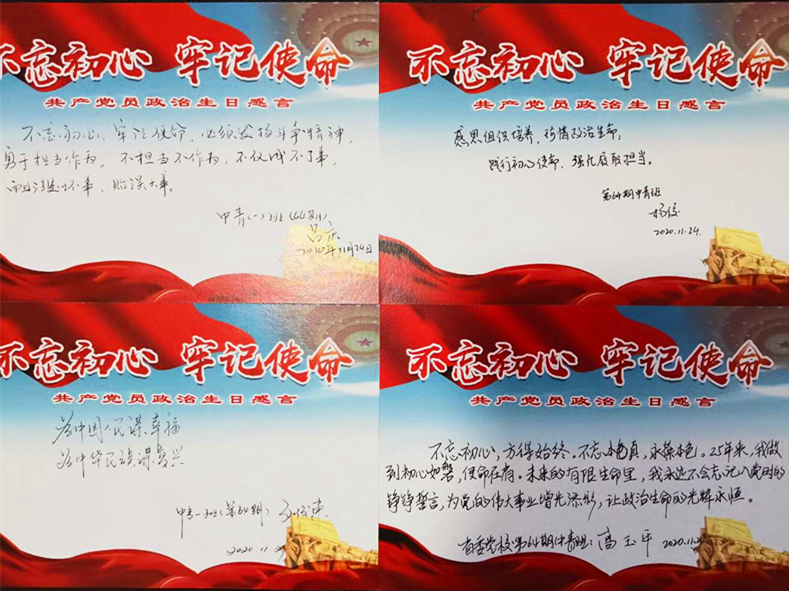 不忘初心 牢记使命
共产党员政治生日感言
不忘初心、牢记使命，必须发扬斗争精神，
勇于担当作为。不担当不作为，不仅成不了事，
而且注定坏事、贻误大事。
中青(一)班(64期)
吕庆
2020年11月24日
不忘初心 牢记使命
共产党员政治生日感言
感恩组织培养，珍惜政治生命；
践行初心使命，强化履职担当。
第64期中青班
杨俊
2020.11.24.
不忘初心 牢记使命
共产党员政治生日感言
为中国人民谋幸福
为中华民族谋复兴
中青一班(第64期)
2020.11.
不忘初心 牢记使命
共产党员政治生日感言
不忘初心，方得始终，不忘本色真，永葆本色。25年来，我做
到初心如磐，使命在肩。未来的有限生命里，我永远不会忘记入党时的
铮铮誓言，为党的伟大事业增光添彩，让政治生命的光辉永恒。
省委党校第64期中青班：高玉平 2020.11.24